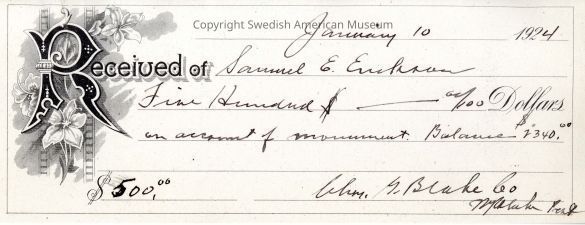 Copyright Swedish American Museum
January 10 1924
Received of Samuel E. Erickson
Five Hundred $ — 00/100 Dollars
on account of monument. Balance $2340.00
$500.00 Chas. G. Blake Co
Prest